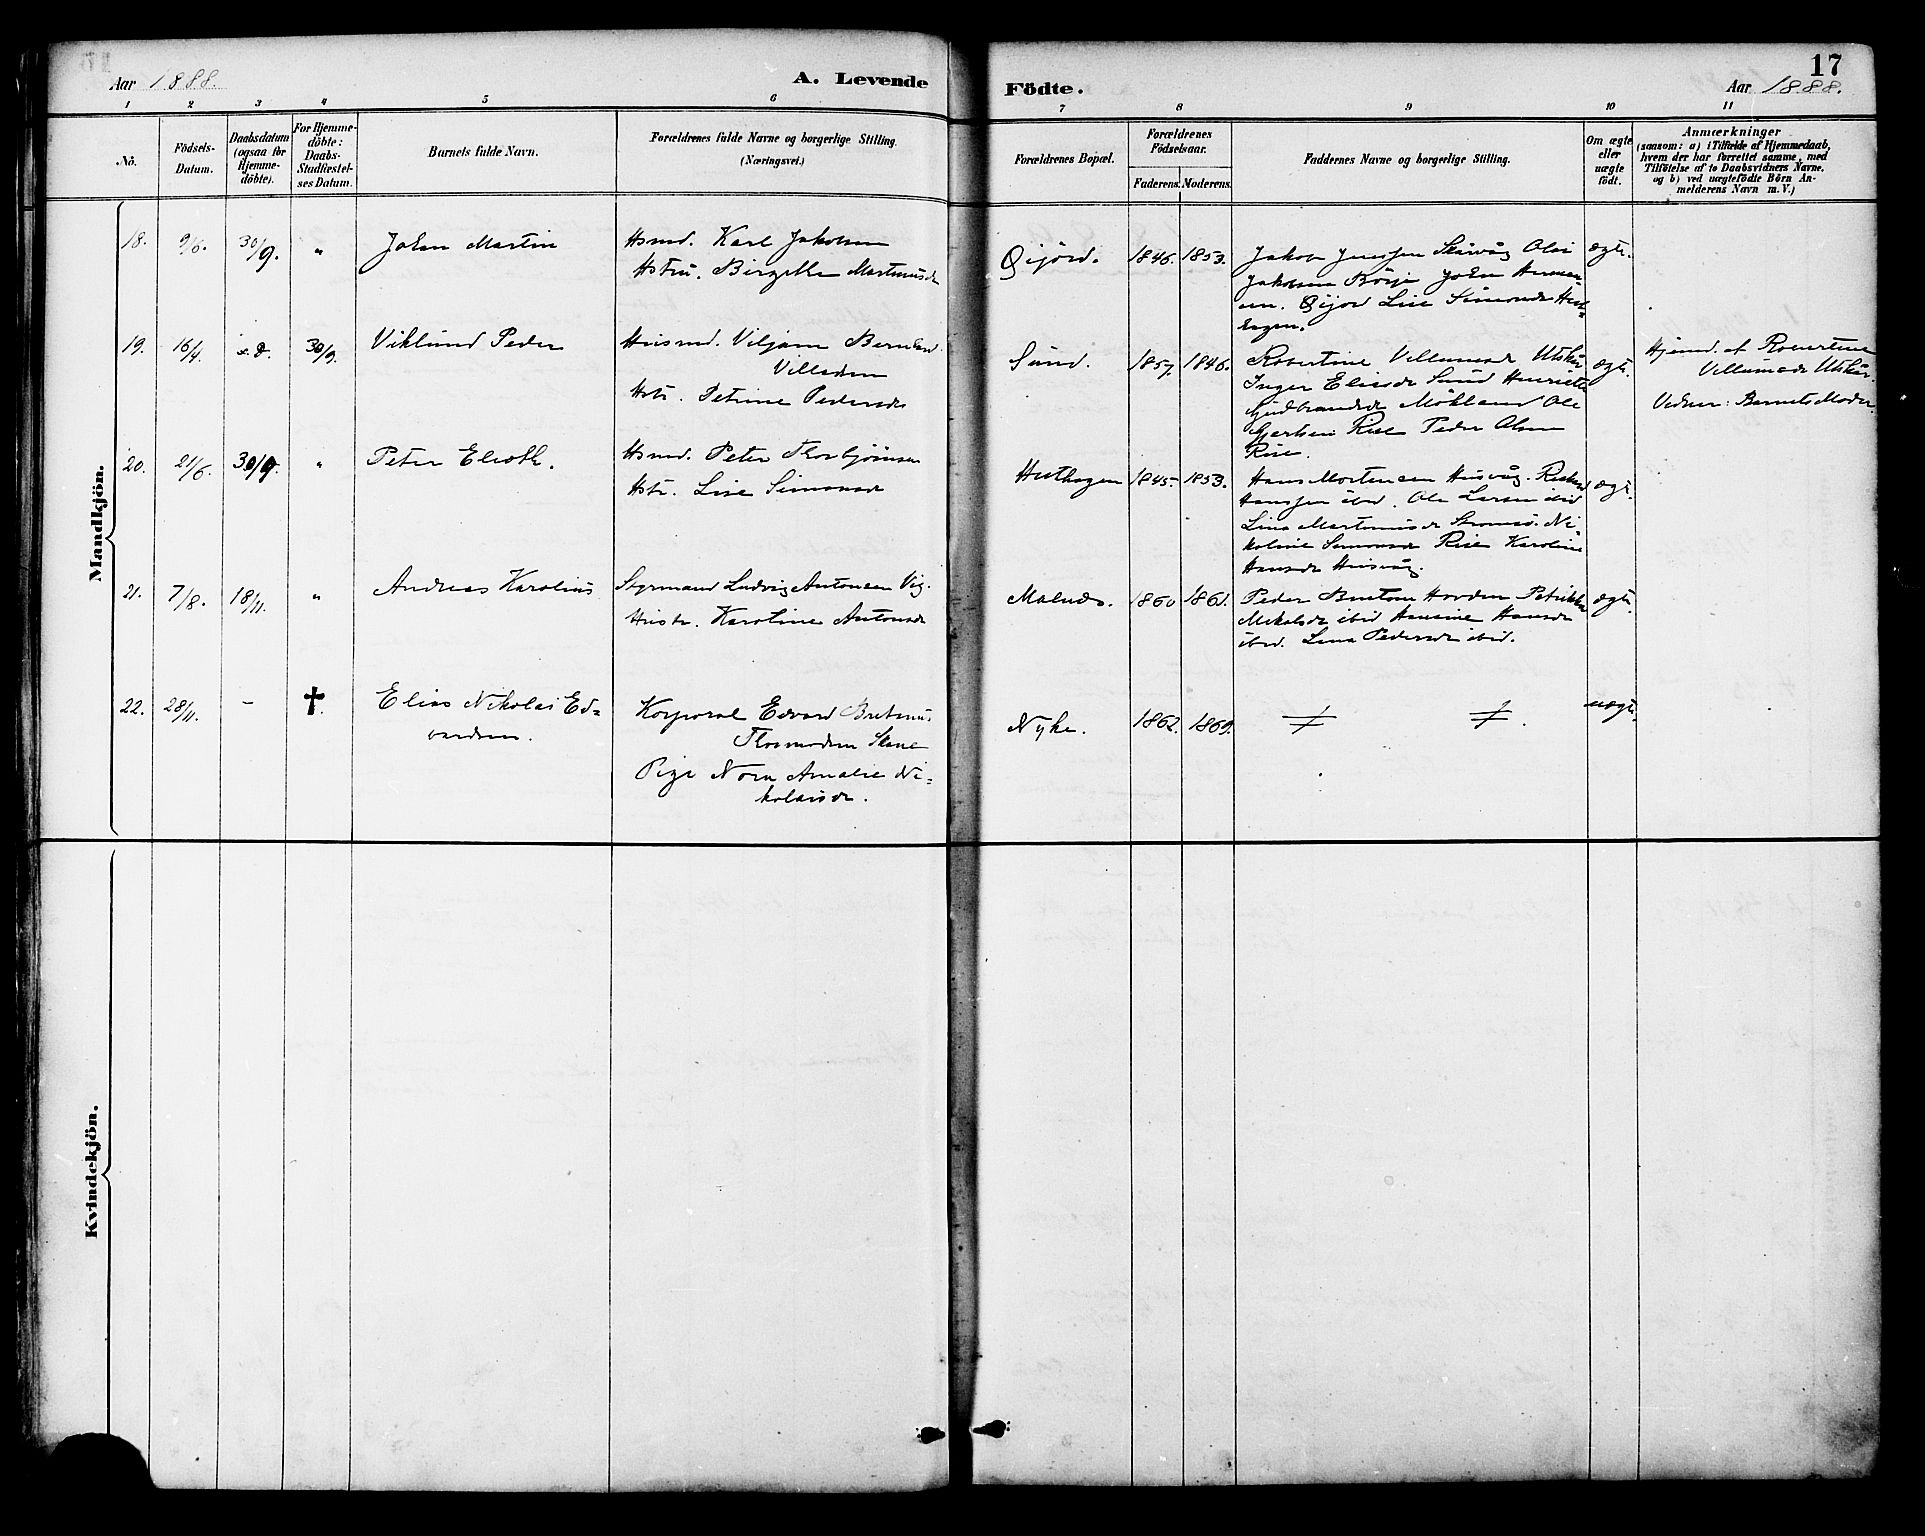 Aar 1888.
A. Levende
Födte.
17
Aar 1888.
1 2 3 4 5 6 7 8 9 10 11
No.
Födsels-
Datum.
Daabsdatum
(ogsaa for
Hjemme-
döbte).
For Hjemme-
döbte:
Daabs-
Stadfæstel-
ses Datum.
Barnets fulde Navn.
Forældrenes fulde Navne og borgerlige Stilling.
(Næringsvei.)
Forældrenes Bopæl.
Forældrenes
Födselsaar.
Faderens. Moderens.
Faddernes Navne og borgerlige Stilling.
Om ægte
eller
uægte
födt.
Anmærkninger
(saasom: a) i Tilfælde af Hjemmedaab,
hvem der har forrettet samme, med
Tilföielse af to Daabsvidners Navne,
og b) ved uægtefödte Börn An-
melderens Navn m. V.)
Mandkjön.
18. 9/6. 30/9. "
Johan Martin
Hsmd. Karl Jakobsen
Hstru. Birgitte Martinusdr
Qvjörd. 1846. 1853.
Jakob Jenssen Skårvåg Ole
Jakobsen Börje Johan Herman-
sen. Qvjord Lise Simonsdr Hest-
hagen.
ægte.
19. 16/4. s.D. 30/9.
Viklund Peder
Husmd. Viljam Bernhard
Villadsen
Hstr. Petrine Pedersdr
Sund. 1857. 1846.
Robertine Villumsdr Utskår
Inger Eliasdr Sund Henriette
Gudbrandsdr Mökland Ole
Gjertsen Rise Peder Olsen
Rise.
ægte.
Hjemd. af Robertine
Villumsdr Utskår.
Vidner: Barnets Moder.
20. 21/6. 30/9. "
Peter Elioth.
Hsmd. Peter Thorbjörnsen
Hstr. Lise Simonsdr
Hesthagen 1845 1853.
Hans Mortensen Husvåg. Rikard
Hanssen ibid. Ole Larsen ibid
Lina Martinusdr Stromsö. Ni-
koline Simonsdr Rise Karoline
Hansdr Husvåg.
ægte.
21. 7/8. 18/11. "
Andreas Karolius
Styrmand Ludvig Antonsen Vig.
Hustr. Karoline Antonsdr
Malnes. 1860 1861.
Peder Bentsen Hovden Petrikke
Mikalsdr ibid Hansine Hansdr
ibid. Lina Pedersdr ibid.
ægte.
22. 28/11. - †
Elias Nikolai Ed-
vardsen.
Korporal Edvard Bretinus
Thormodsen Skane
Pige Nora Amalie Ni-
kolaisdr.
Nyke. 1862. 1869.
uægte.
Kvindekjön.